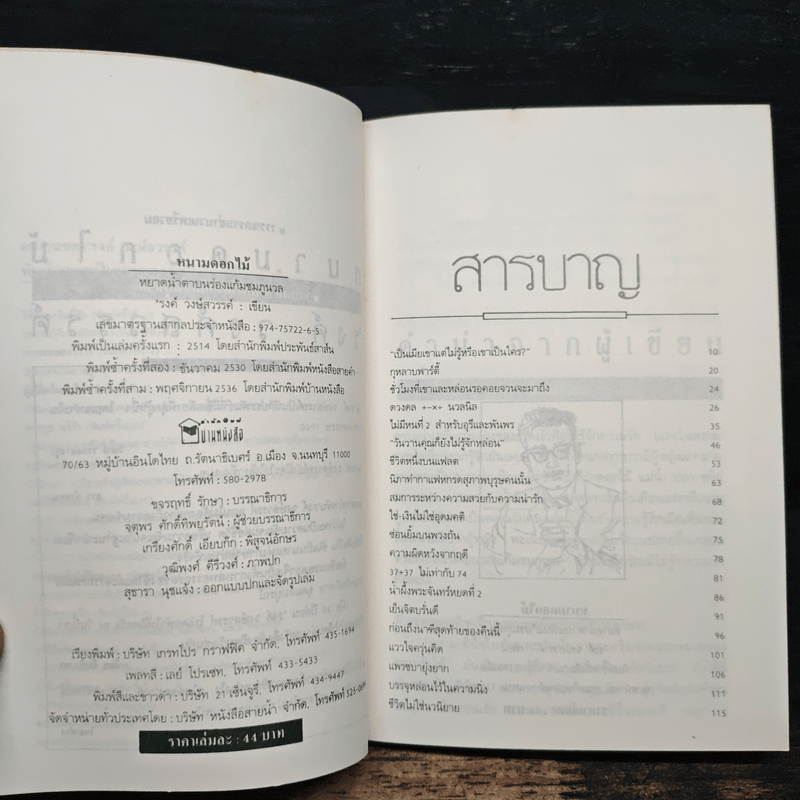 หนามดอกไม้
หยาดน้ำตาบนร่องแก้มชมภูนวล
'รงค์ วงษ์สวรรค์ : เขียน
เลขมาตรฐานสากลประจำหนังสือ : 974-75722-6-5
พิมพ์เป็นเล่มครั้งแรก : 2514 โดยสำนักพิมพ์ประพันธ์สาส์น
พิมพ์ซ้ำครั้งที่สอง : ธันวาคม 2530 โดยสำนักพิมพ์หนังสือสายคำ
พิมพ์ซ้ำครั้งที่สาม : พฤศจิกายน 2536 โดยสำนักพิมพ์บ้านหนังสือ
สำนักพิมพ์
บ้านหนังสือ
70/63 หมู่บ้านอินโดไทย ถ.รัตนาธิเบศร์ อ.เมือง จ.นนทบุรี 11000
โทรศัพท์ : 580-2978
ขจรฤทธิ์ รักษา : บรรณาธิการ
จตุพร ศักดิ์ทิพยรัตน์ : ผู้ช่วยบรรณาธิการ
เกรียงศักดิ์ เอียบก๊ก : พิสูจน์อักษร
วุฒิพงศ์ คีรีวงศ์ : ภาพปก
สุธารา นุชแจ้ง : ออกแบบปกและจัดรูปเล่ม
เรียงพิมพ์ : บริษัท เกรทโปร กราฟฟิค จำกัด. โทรศัพท์ 435-1694
เพลทสี : เลย์ โปรเซท. โทรศัพท์ 433-5433
พิมพ์สีและขาวดำ : บริษัท 21 เซ็นจูรี่. โทรศัพท์ 434-9447
จัดจำหน่ายทั่วประเทศโดย : บริษัท หนังสือสายน้ำ จำกัด. โทรศัพท์
ราคาเล่มละ : 44 บาท
สารบาญ
"เป็นเมียเขาแต่ไม่รู้หรือเขาเป็นใคร?" 10
กุหลาบปาร์ตี้ 20
ชั่วโมงที่เขาและหล่อนรอคอยจวนจะมาถึง 24
ดวงดล +-×÷ นวลนิล 26
ไม่มีหนที่ 2 สำหรับอุรีและพันพร 35
"วันวานคุณก็ยังไม่รู้จักหล่อน" 46
ชีวิตหนึ่งบนแฟลต 53
นิภาทำกาแฟหกรดสุภาพบุรุษคนนั้น 63
สมการระหว่างความสวยกับความน่ารัก 68
ใช่-เงินไม่ใช่อุดมคติ 72
ซ่อนยิ้มบนพวงถัน 75
ความผิดหวังจากฤดี 78
37+37 ไม่เท่ากับ 74 81
น้ำผึ้งพระจันทร์หยดที่ 2 86
เย็นจิตบรันดี 91
ก่อนถึงนาฑีสุดท้ายของคืนนี้ 96
แววใจครุ่นคิด 101
แพรชบายุ่งยาก 106
บรรจุหล่อนไว้ในความนิ่ง 111
ชีวิตไม่ใช่นวนิยาย 115